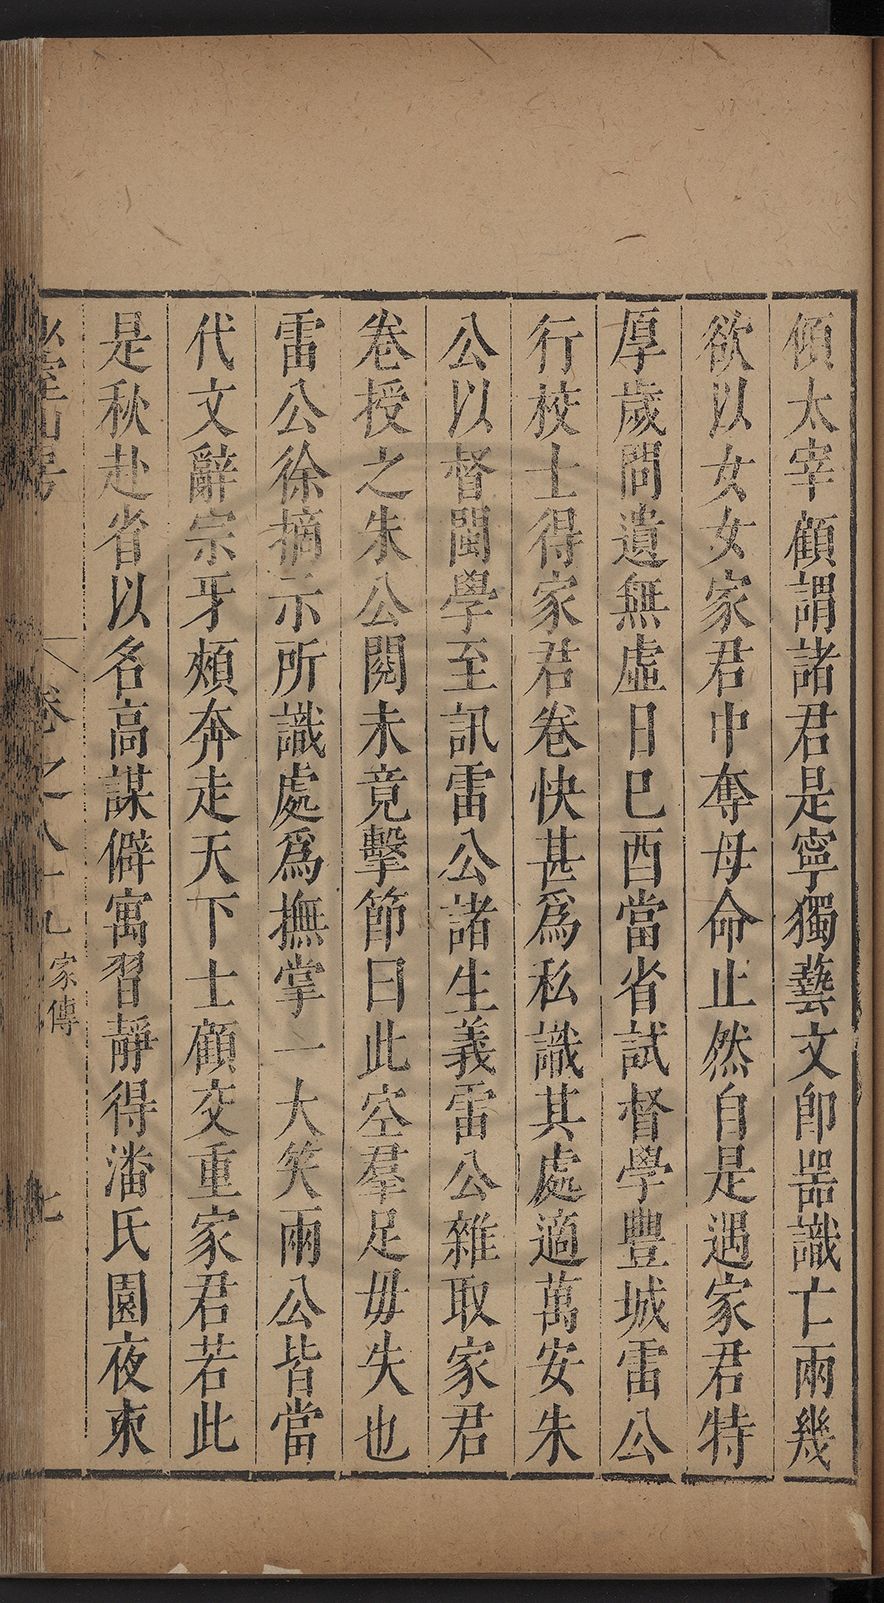 傾太宰顧謂諸君是寧獨藝文卽噐識亡兩幾
欲以女女家君中奪母命止然自是遇家君特
厚歲問遺無虛日巳酉當省試督學豐城雷公
行校士得家君卷快甚爲私識其處適萬安朱
公以督閩學至訊雷公諸生義雷公雜取家君
卷授之朱公閱未竟擊節曰此空羣足毋失也
雷公徐摘示所識處爲撫掌一大笑兩公皆當
代文辭宗牙頰奔走天下士顧交重家君若此
是秋赴省以名高謀僻寓習靜得潘氏園夜東
山房
卷之八十九 家傳
七